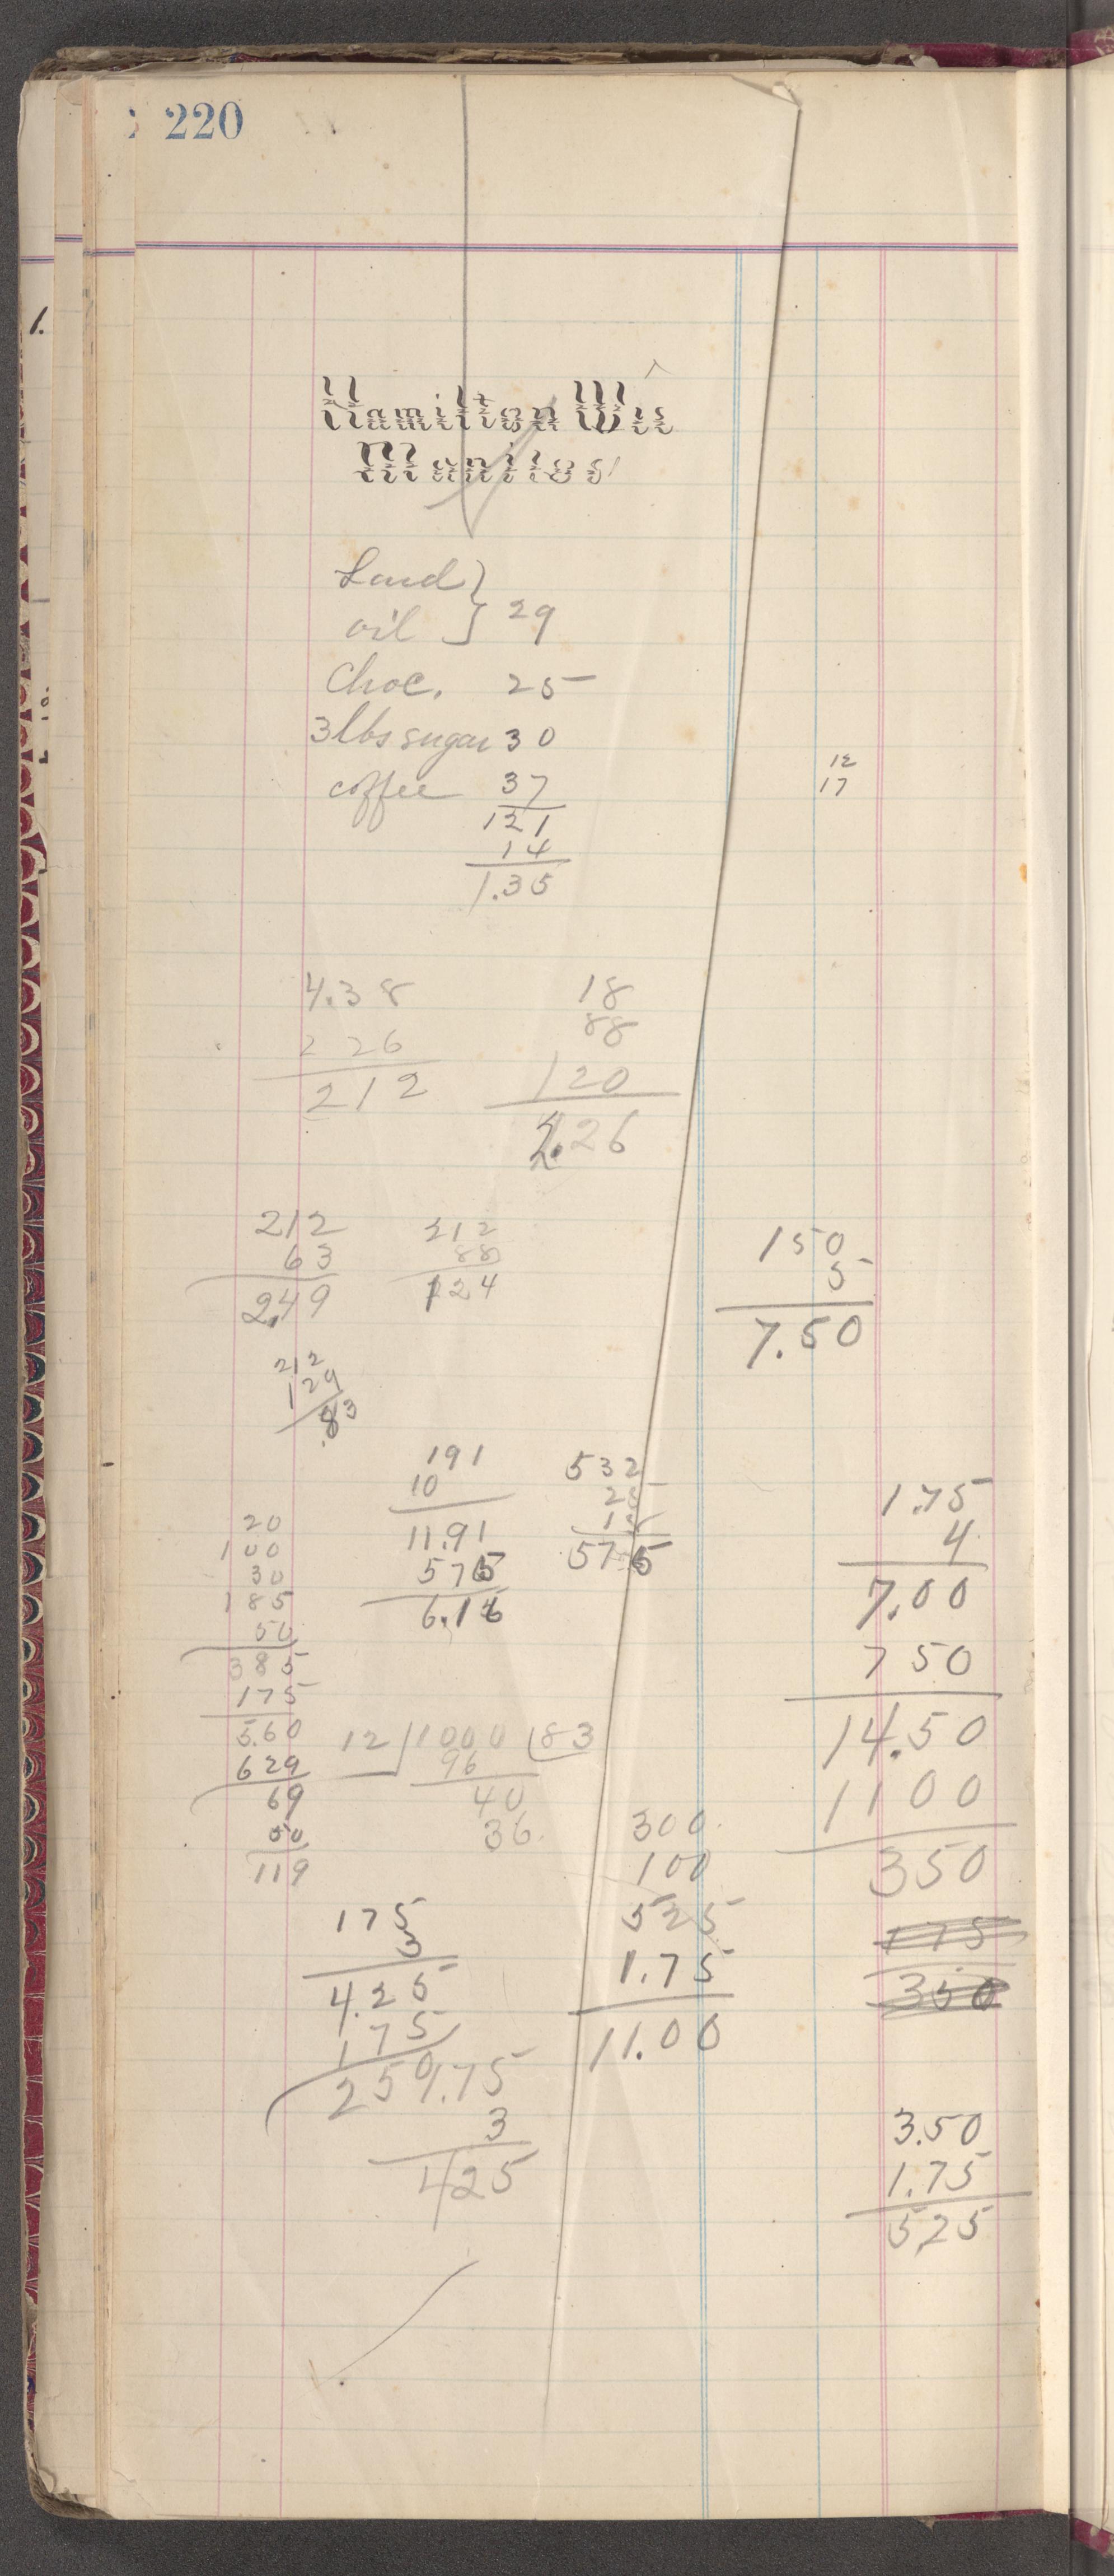 220
1.
Hamilton Wis
Manitos
Lard }
oil } 29
Choc. 25
3 lbs sugar 30
coffee 37
121
14
1.35
12
17
4.38
2 26
212
18
88
120
2.26
212
63
2.49
212
88
124
150
5
7.50
212
129
.83
191
10
11.91
576
6.15
532
25
18
575
1.75
4
7.00
7 50
14.50
11 00
350
175
350
20
100
30
185
50
385
175
5.60
629
69
50
119
12 1000 83
96
40
36
300
100
525
1.75
11.00
175
3
4.25
175
250
1.75
3
425
3.50
1.75
525